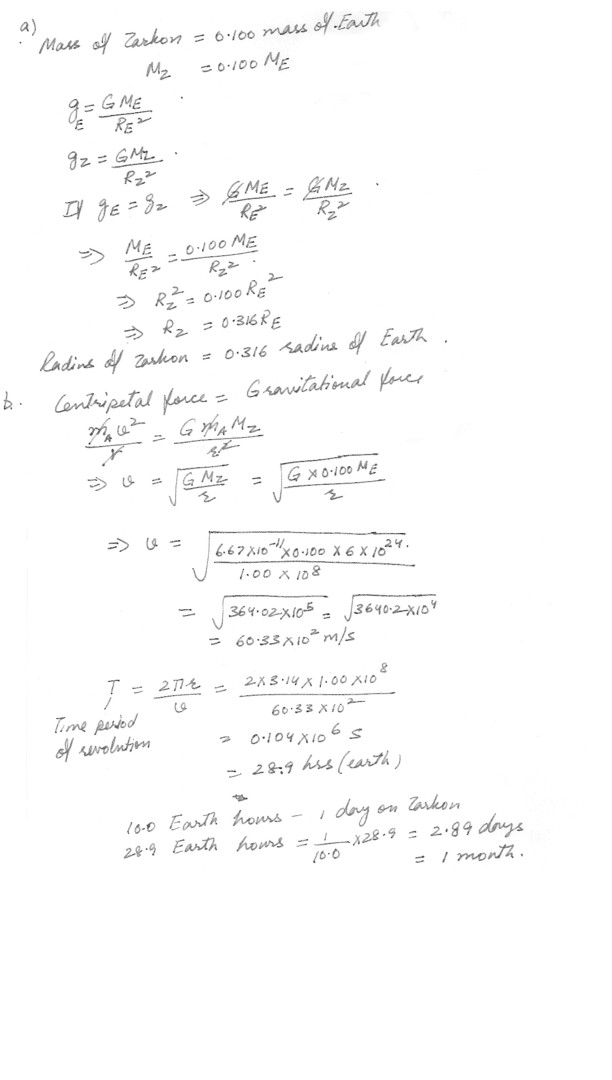 a) Mass of Zarkon = 0.100 mass of Earth
M_Z = 0.100 M_E
g_E = G M_E / R_E^2
g_Z = G M_Z / R_Z^2
If g_E = g_Z ⇒ G M_E / R_E^2 = G M_Z / R_Z^2
⇒ M_E / R_E^2 = 0.100 M_E / R_Z^2
⇒ R_Z^2 = 0.100 R_E^2
⇒ R_Z = 0.316 R_E
Radius of Zarkon = 0.316 radius of Earth.
b. Centripetal force = Gravitational force
m_A v^2 / r = G m_A M_Z / r^2
⇒ v = √(G M_Z / r) = √(G × 0.100 M_E / r)
⇒ v = √(6.67 × 10^-11 × 0.100 × 6 × 10^24 / 1.00 × 10^8)
= √(364.02 × 10^5) = √(3640.2 × 10^4)
= 60.33 × 10^2 m/s
T = 2πr / v = 2 × 3.14 × 1.00 × 10^8 / 60.33 × 10^2
Time period
of revolution = 0.104 × 10^6 s
= 28.9 hrs (earth)
10.0 Earth hours - 1 day on Zarkon
28.9 Earth hours = 1 / 10.0 × 28.9 = 2.89 days
= 1 month.